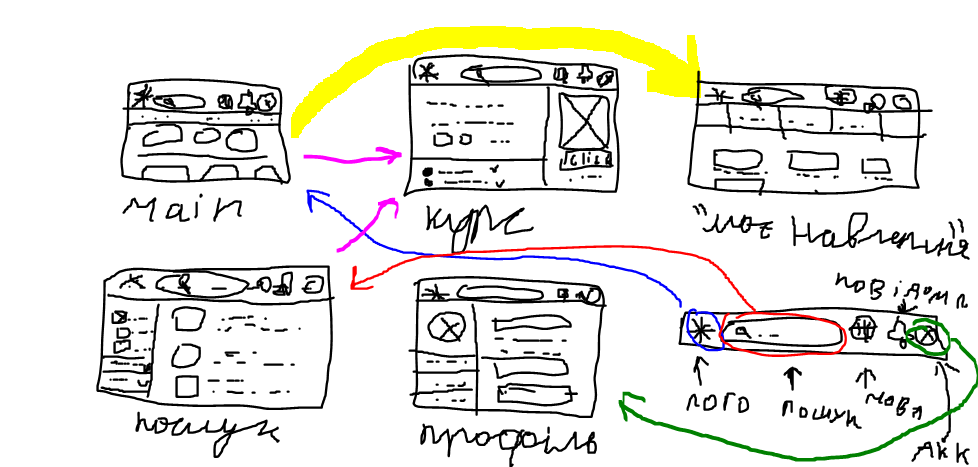 main
курс
"моє навчення"
пошук
профіль
повідомл
лого
пошук
мова
акк